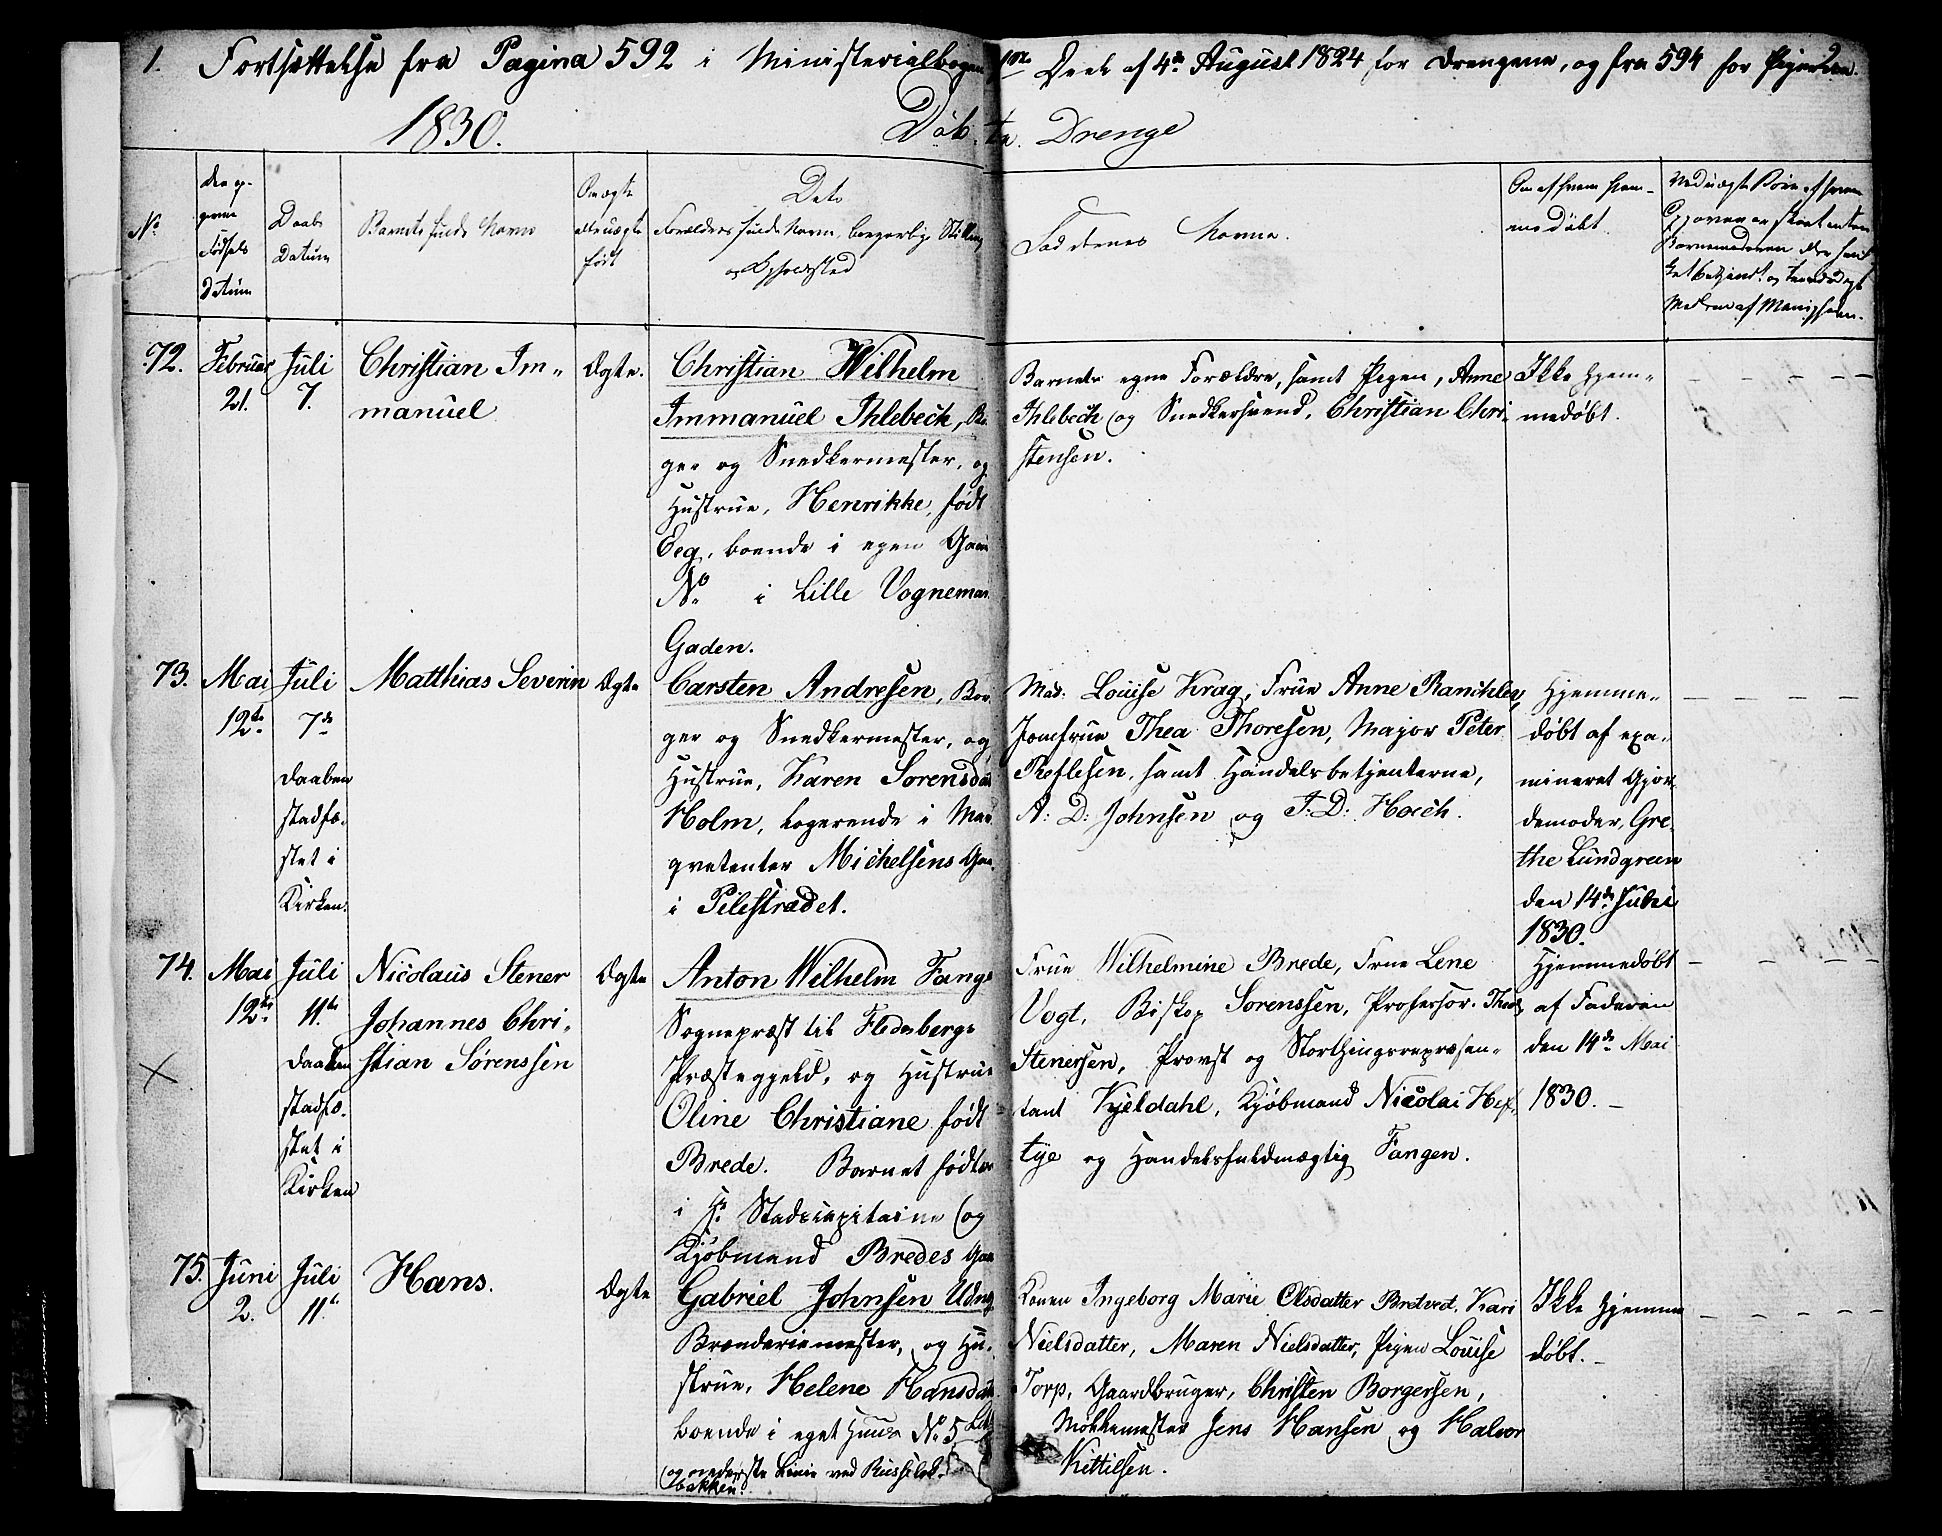 1. Fortsættelse fra Pagina 592 i Ministerialbogens 1ste Deel af 4de August 1824 for Drengene, og fra 594 for Pigerne. 2.
1830. Døbte Drenge
No
Daabs
Datum
Barnets fulde Navn
Om ægte
eller uægte
født
Dets
Forældres fulde Navn, borgerlige Stilling
og Opholdssted
Faddernes Navne.
Om af hvem hjem-
medøbt.
Fødsels
Datum
72.
Februar
21.
Juli
7.
Christian Im-
manuel
Ægte.
Christian Wilhelm
Immanuel Ihlebech, Bor
ger og Snedkermester, og
Hustrue, Henrikke, født
Eeg, boende i egen Gaard
No i Lille Vognemand
Gaden.
Barnets egne Forældre, samt Pigen, Anne
Ihlebech og Snedkersvend, Christian Chri-
stensen.
Ikke hjem-
medøbt.
73.
Mai
12te
Juli
7de
Daaben
stadfæ-
stet i
Kirken.
Matthias Severin
Ægte
Carsten Andresen, Bor
ger og Snedkermester, og
Hustrue, Karen Sørensdat
Holm, logerende i
Michelsens Gaa
i Pilestrædet.
Mad: Louise Krag, Frue Anne
Jomfrue Thea Thoresen, Major Peter
samt Handelsbetjenterne,
A: D: Johnsen og J: D: Hoech.
Hjemme-
døbt af exa-
mineret Gjor-
demoder, Gre-
the Lundgreen
den 14de Juni
1830.
74.
Mai
12te
Juli
11te
Daaben
stadfæ-
stet i
Kirken
Nicolaus Stener
Johannes Chri-
stian Sørenssen
Ægte
Anton Wilhelm Fangen
Sognepræst til Flesbergs
Præstegjeld, og Hustrue
Oline Christiane født
Brede. Barnet født
i Hr. Stadscapitaine (og
Kjøbmand Bredes Gaa
Frue Wilhelmine Brede, Frue Lene
Vogt, Biskop Sørenssen, Professor Theol
Stenersen, Provst og Storthingsrepræsen-
tant Kjeldahl, Kjøbmand Nicolai Hef-
tye og Handelsfuldmægtig Fangen.
Hjemmedøbt
af Faderen
den 14de Mai
1830. –
75.
Juni
2.
Juli
11te
Hans.
Ægte
Gabriel Johnsen Udnæs
Brænderiemester, og Hu-
strue, Helene Hansdat
boende i eget Huus No 5
og nederste Linie ved
bakken.
Konen Ingeborg Marie Olsdatter Bredved, Kari
Nielsdatter, Maren Nielsdatter, Pigen Louise
Torp, Gaardbruger, Christen Borgersen,
Jens Hansen og Halvor
Kittilsen.
Ikke hjemme
døbt. –